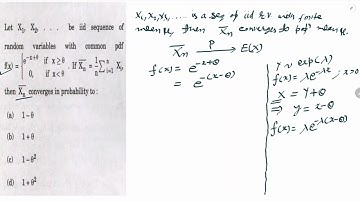 Let X₁, X₂, . . . be iid sequence of
random variables with common pdf
f(x) = { e^{-x+θ} if x ≥ θ
0, if x < θ . If X̄ₙ = 1/n ∑ᵢ₌₁ⁿ Xᵢ,
then X̄ₙ converges in probability to :
(a) 1 – θ
(b) 1 + θ
(c) 1 – θ²
(d) 1 + θ²
X₁, X₂, X₃, ..... is a seq of iid r.v with finite
mean μ, then X̄ₙ converges to pop mean μ.
X̄ₙ →ᴾ E(X)
f(x) = e^{-x+θ}
= e^{-(x-θ)}
Y ~ exp(λ)
f(x) = λe^{-λx}, x>0
X = Y+θ
⇒ Y = x-θ
f(x) = λe^{-λ(x-θ)}